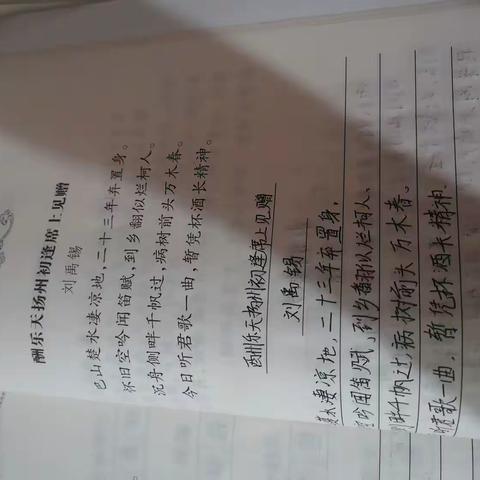 酬乐天扬州初逢席上见赠
刘禹锡
巴山楚水凄凉地，二十三年弃置身。
怀旧空吟闻笛赋，到乡翻似烂柯人。
沉舟侧畔千帆过，病树前头万木春。
今日听君歌一曲，暂凭杯酒长精神。
酬乐天扬州初逢席上见赠
刘禹锡
水凄凉地，二十三年弃置身，
吟闻笛赋，到乡翻似烂柯人、
畔千帆过，病树前头万木春。
君歌一曲，暂凭杯酒长精神.